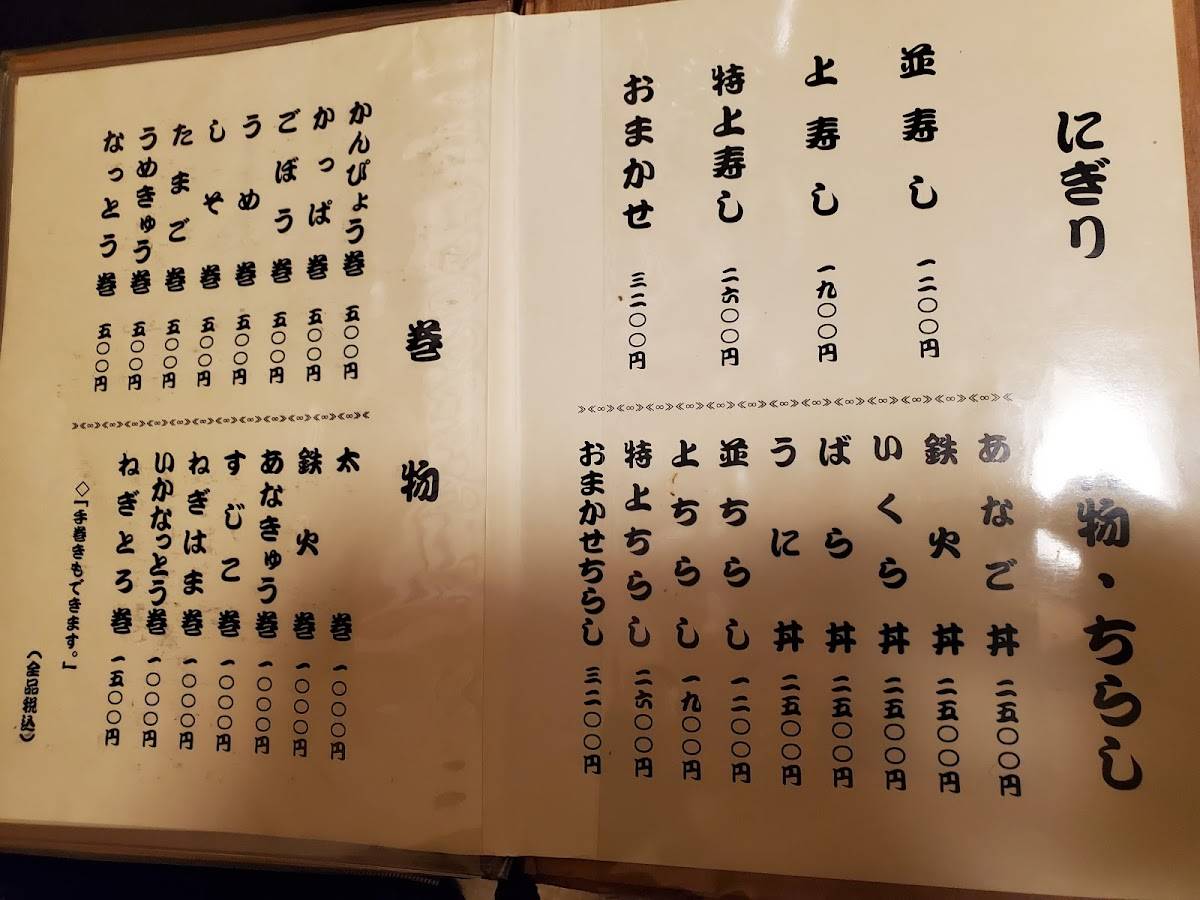 にぎり
並寿し 一二〇〇円
上寿し 一九〇〇円
特上寿し 二六〇〇円
おまかせ 三二〇〇円
物・ちらし
あなご丼 二五〇〇円
鉄火丼 二五〇〇円
いくら丼 二五〇〇円
ばら丼 二五〇〇円
うに丼 二五〇〇円
並ちらし 一二〇〇円
上ちらし 一九〇〇円
特上ちらし 二六〇〇円
おまかせちらし 三二〇〇円
巻物
かんぴょう巻 五〇〇円
かっぱ巻 五〇〇円
ごぼう巻 五〇〇円
うめ巻 五〇〇円
しそ巻 五〇〇円
たまご巻 五〇〇円
うめきゅう巻 五〇〇円
なっとう巻 五〇〇円
太巻 一〇〇〇円
鉄火巻 一〇〇〇円
あなきゅう巻 一〇〇〇円
すじこ巻 一〇〇〇円
ねぎはま巻 一〇〇〇円
いかなっとう巻 一〇〇〇円
ねぎとろ巻 一五〇〇円
◇「手巻きもできます。」
(全品税込)